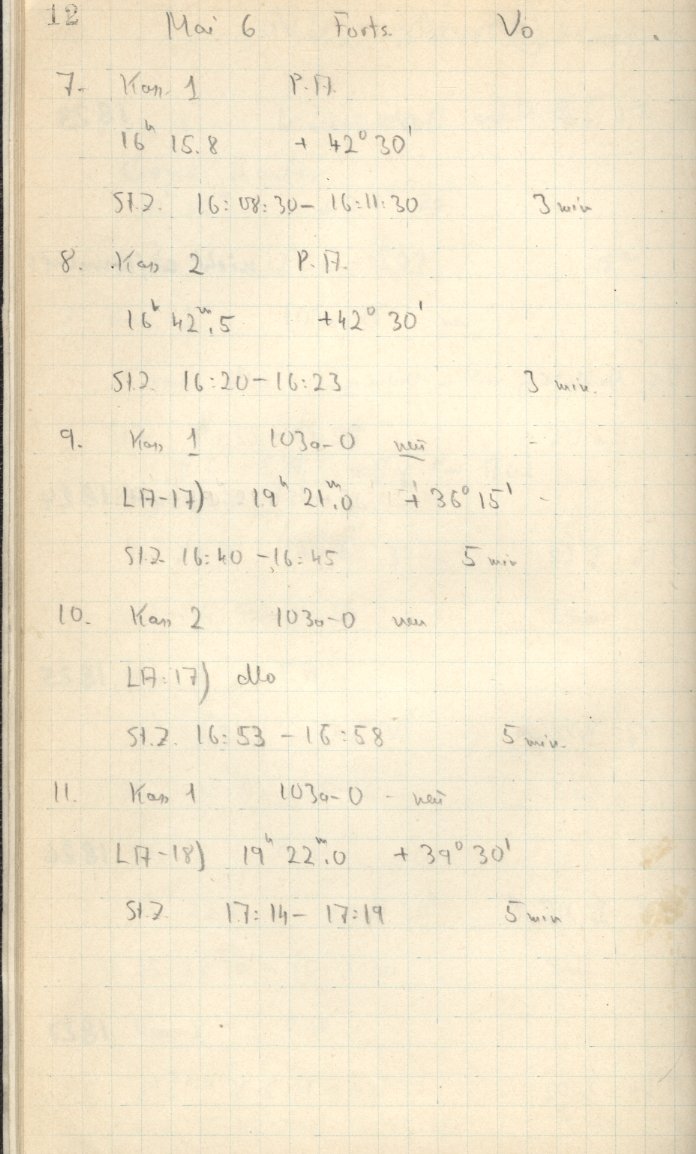 12 Mai 6 Forts. Vo
7. Kass. 1 P.A.
16ʰ 15.8 + 42° 30'
St.Z. 16:08:30 – 16:11:30 3 min
8. Kass 2 P.A.
16ʰ 42ᵐ.5 +42° 30'
St.Z. 16:20 – 16:23 3 min.
9. Kass 1 103a-O neu
LA-17) 19ʰ 21ᵐ.0 + 36° 15'
St.Z. 16:40 – 16:45 5 min
10. Kass 2 103a-O neu
LA-17) dto
St.Z. 16:53 – 16:58 5 min.
11. Kass 1 103a-O - neu
LA-18) 19ʰ 22ᵐ.0 + 39° 30'
St.Z. 17:14 – 17:19 5 min